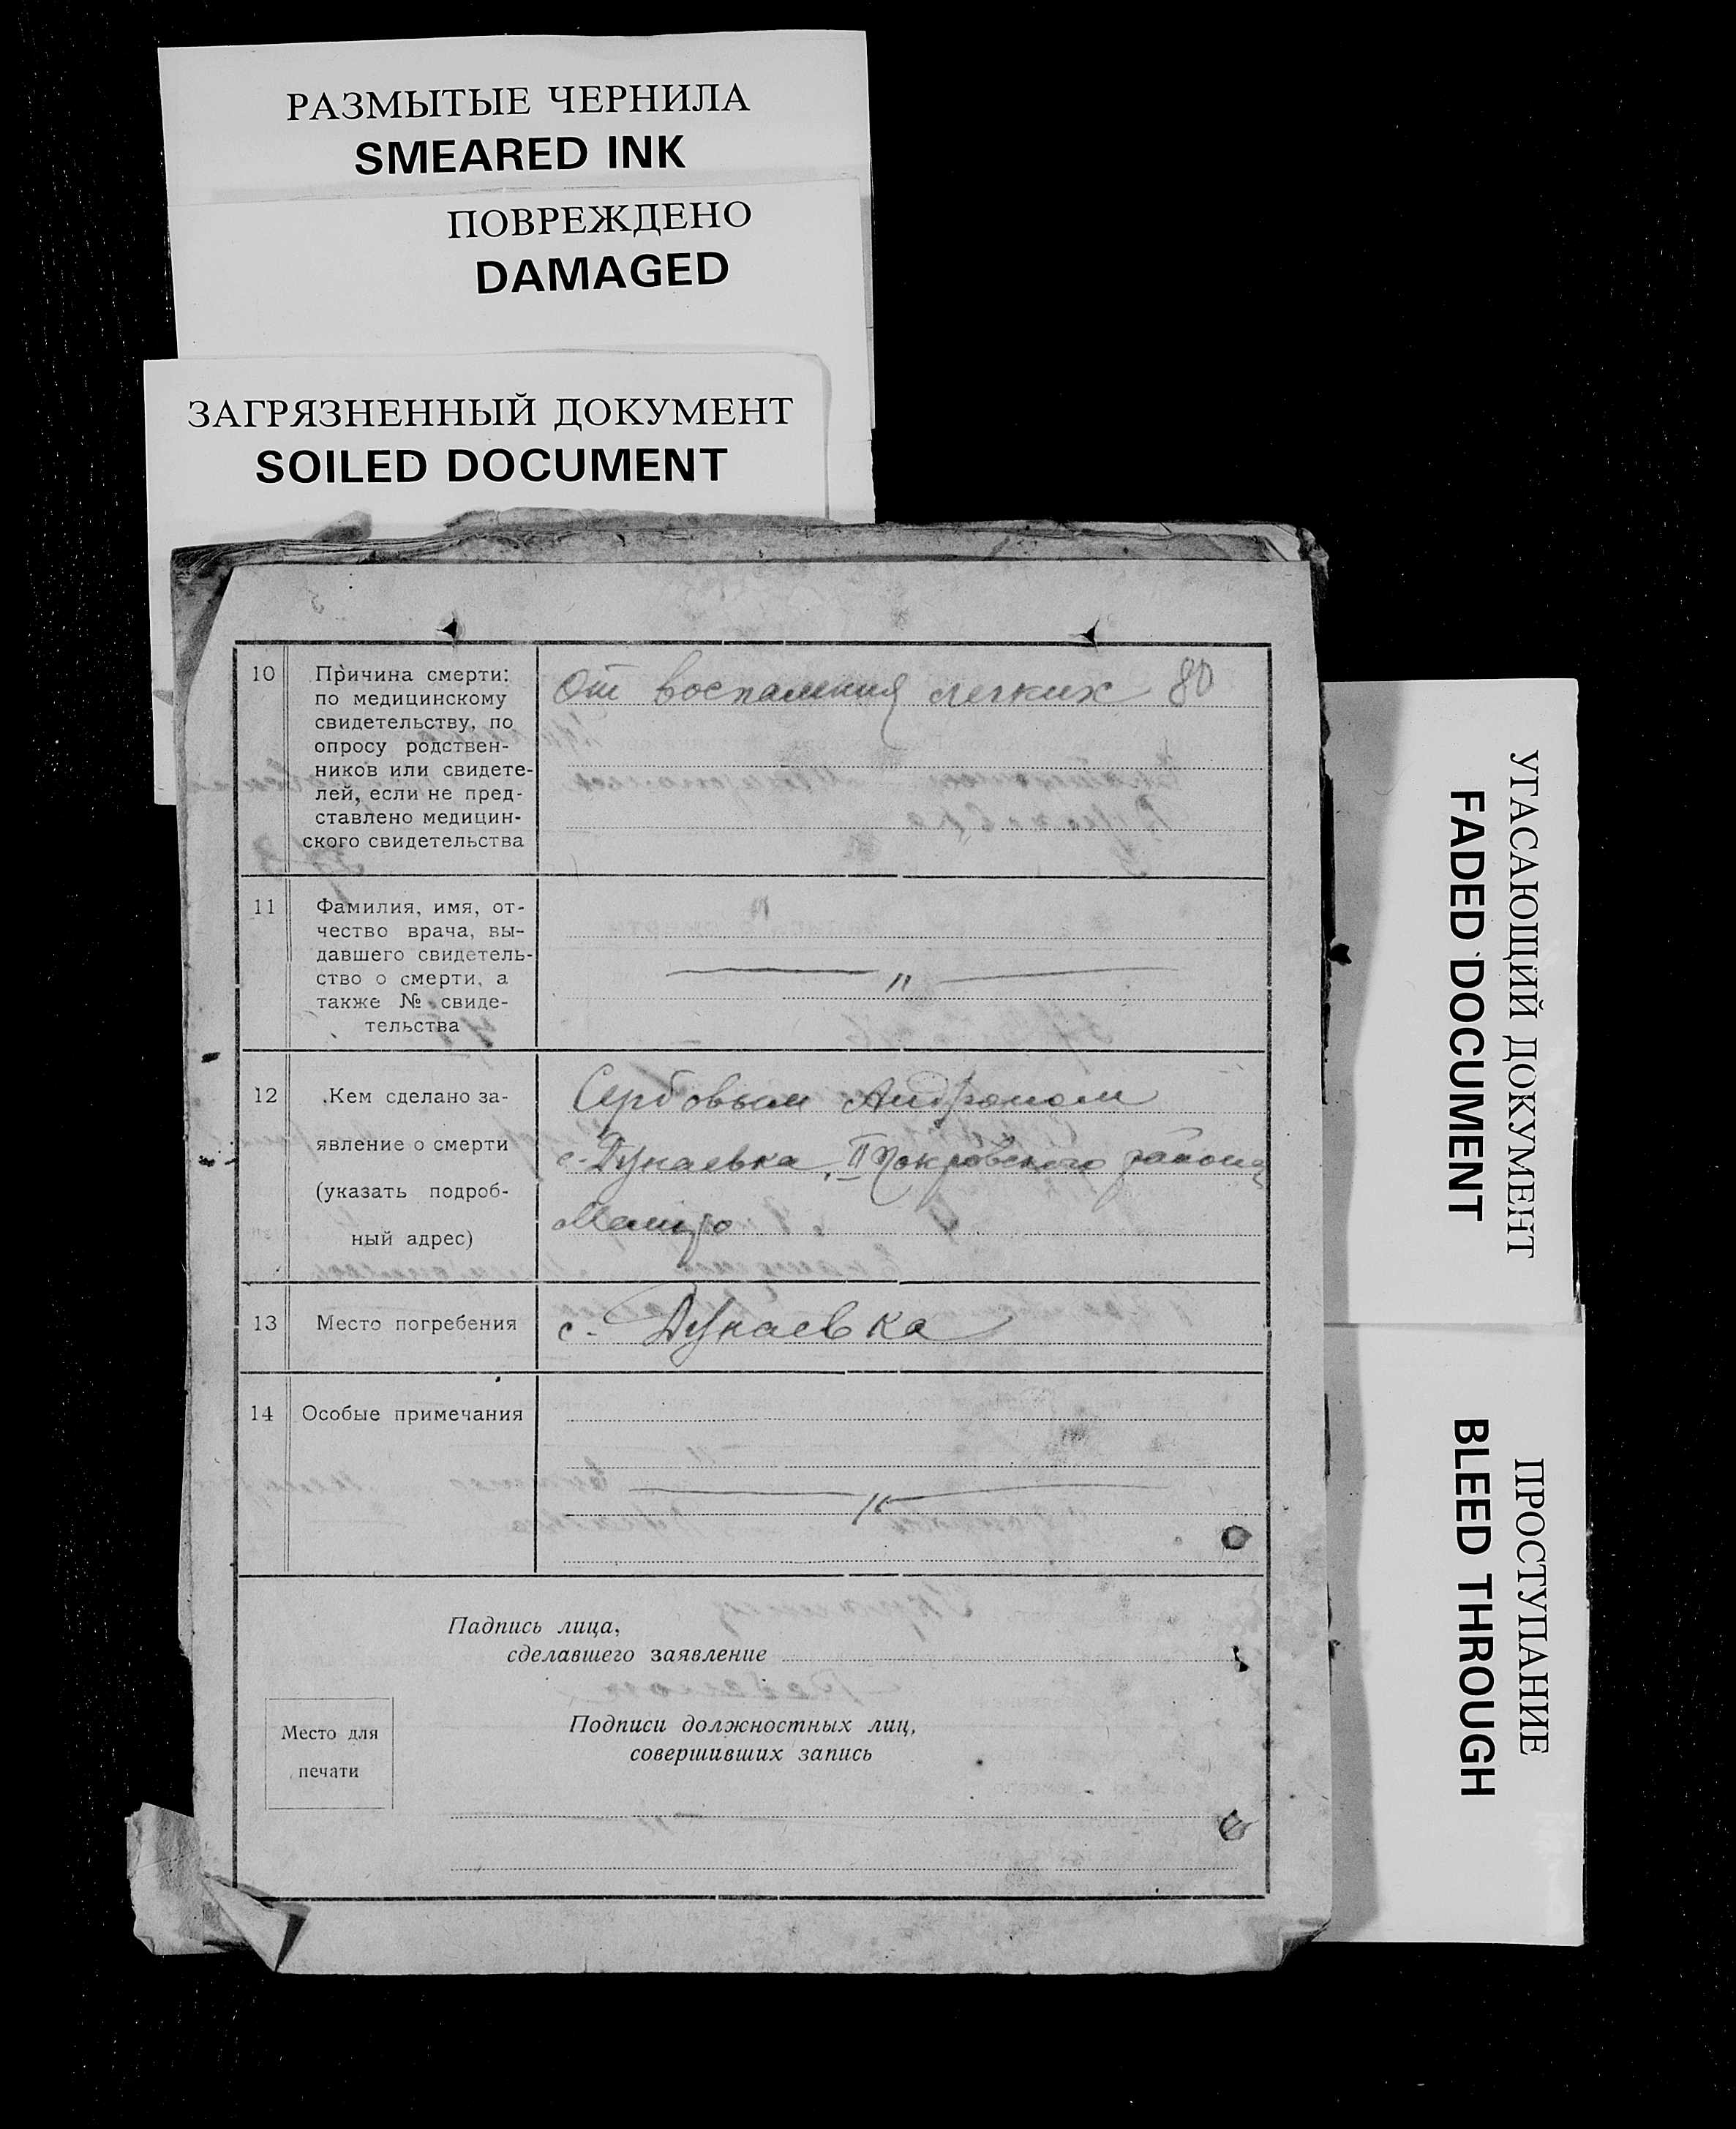 РАЗМЫТЫЕ ЧЕРНИЛА
SMEARED INK
ПОВРЕЖДЕНО
DAMAGED
ЗАГРЯЗНЕННЫЙ ДОКУМЕНТ
SOILED DOCUMENT
10
Причина смерти:
по медицинскому
свидетельству, по
опросу родствен-
ников или свидете-
лей, если не пред-
ставлено медицин-
ского свидетельства
От воспаления легких 80
11
Фамилия, имя, от-
чество врача, вы-
давшего свидетель-
ство о смерти, а
также № свиде-
тельства
— " —
12
Кем сделано за-
явление о смерти
(указать подроб-
ный адрес)
Сербовым Андроном
с. Дунаевка, П Покровского района
13
Место погребения
с. Дунаевка
14
Особые примечания
— " —
Падпись лица,
сделавшего заявление
Место для
печати
Подписи должностных лиц,
совершивших запись
УГАСАЮЩИЙ ДОКУМЕНТ
FADED DOCUMENT
ПРОСТУПАНИЕ
BLEED THROUGH